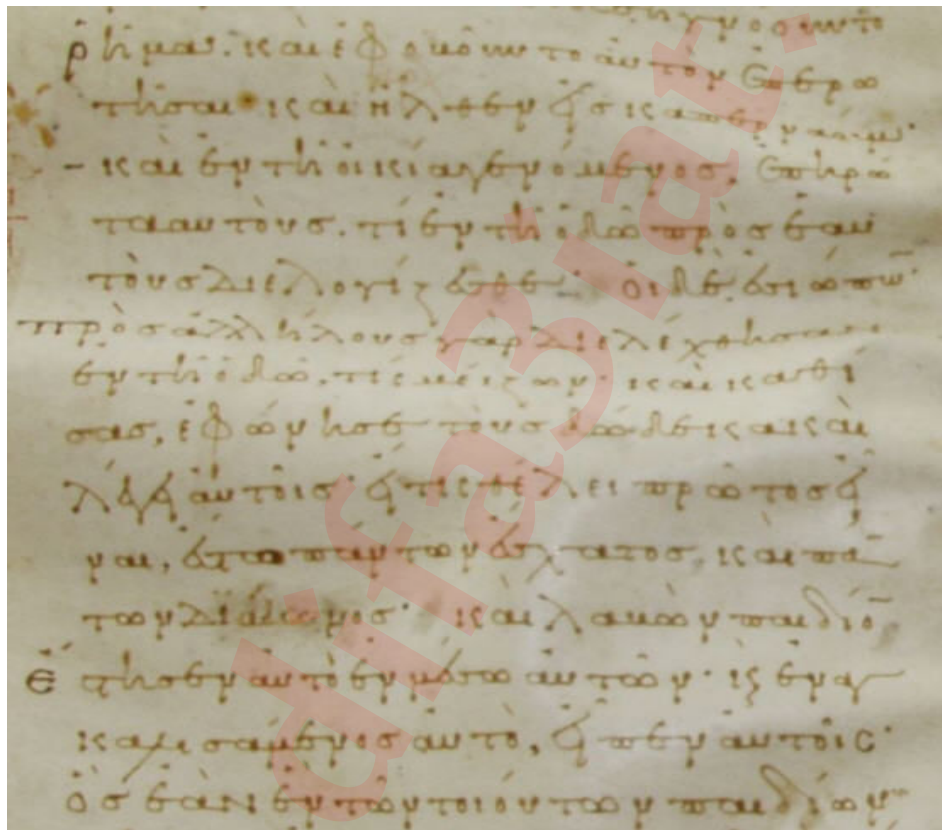 ρῆμα· καὶ ἐφοβοῦντο αὐτὸν ἐπερω
τῆσαι· καὶ ἦλθεν εἰς καπερναούμ·
καὶ ἐν τῆ οἰκία γενόμενος, ἐπηρώ
τα αὐτοὺς. τί ἐν τῆ ὁδῶ πρὸς ἑαυ
τοὺς διελογίζεσθε· οἱ δὲ ἐσιώπων·
πρὸς ἀλλήλους γὰρ διελέχθησαν
ἐν τῆ ὁδῶ, τίς μείζων· καὶ καθί
σας, ἐφώνησε τοὺς δώδεκα καὶ
λέγει αὐτοῖς· εἴ τις θέλει πρῶτος εἶ
ναι, ἔσται πάντων ἔσχατος, καὶ πά
των διάκονος· καὶ λαβὼν παιδίο
ἔστησεν αὐτὸ ἐν μέσω αὐτῶν· κ ἐναγ
καλισάμενος αὐτὸ, εἶπεν αὐτοῖς·
ὃς ἐὰν ἓν τῶν τοιούτων παιδίων